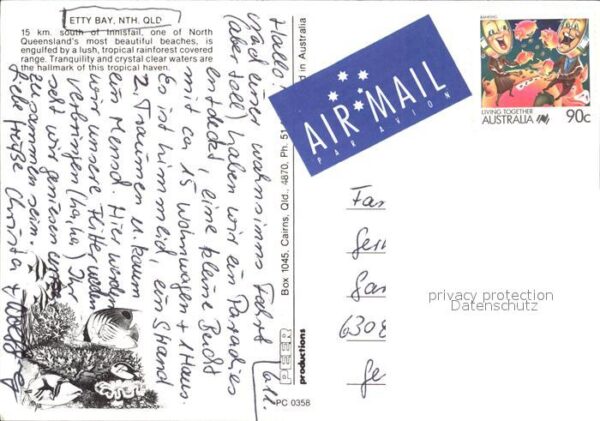 ETTY BAY, NTH. QLD
15 km. south of Innisfail, one of North
Queensland's most beautiful beaches, is
engulfed by a lush, tropical rainforest covered
range. Tranquility and crystal clear waters are
the hallmark of this tropical haven.
Hallo! 6.11.
Nach einer wahnsinns Fahrt
(aber toll) haben wir ein Paradies
entdeckt, eine kleine Bucht
mit ca 15 Wohnwagen + 1 Haus.
Es ist himmlid, ein Strand
z. Träumen u. kaum
ein Mensch. Hier werden
wir unsere Flitterwochen
verbringen (ha, ha) Ihr
seht wir geniesen unser
zusammen sein.
Liebe Grüße Christa +
d in Australia
Box 1045, Cairns, Qld., 4870, Ph. 51
PEER
productions
PC 0358
AIR MAIL
PAR AVION
BANKING
LIVING TOGETHER
AUSTRALIA 90c
Fan
Ger
Gar
6308
Ge
privacy protection
Datenschutz